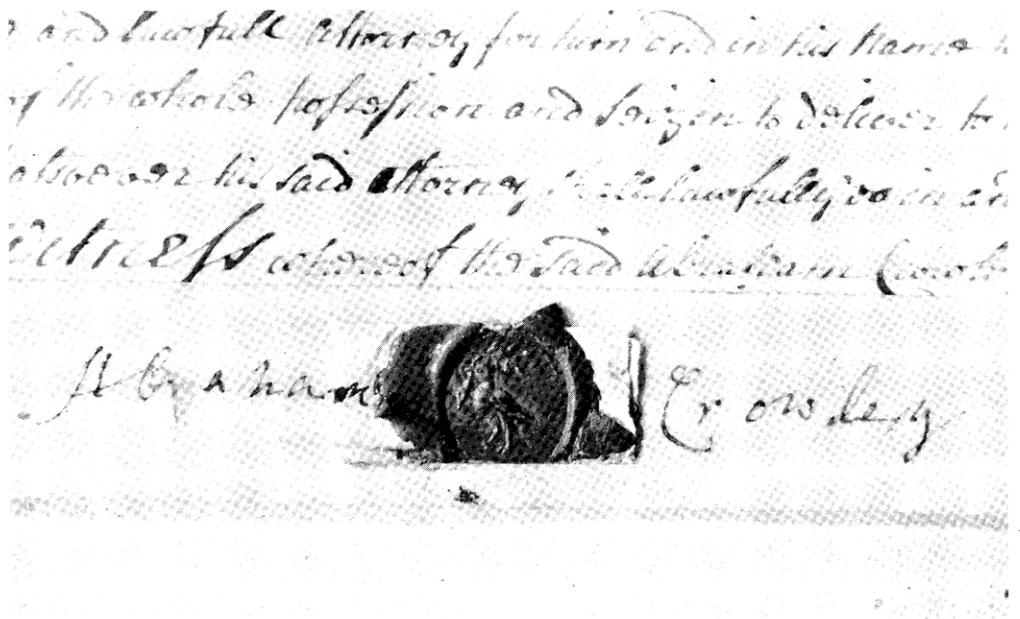 and lawfull attorney for him and in his name
of the whole possession and Seizen to deliver to
his said attorney shall lawfully do in
Witness whereof the said Abraham Crowle
Abraham Crowley